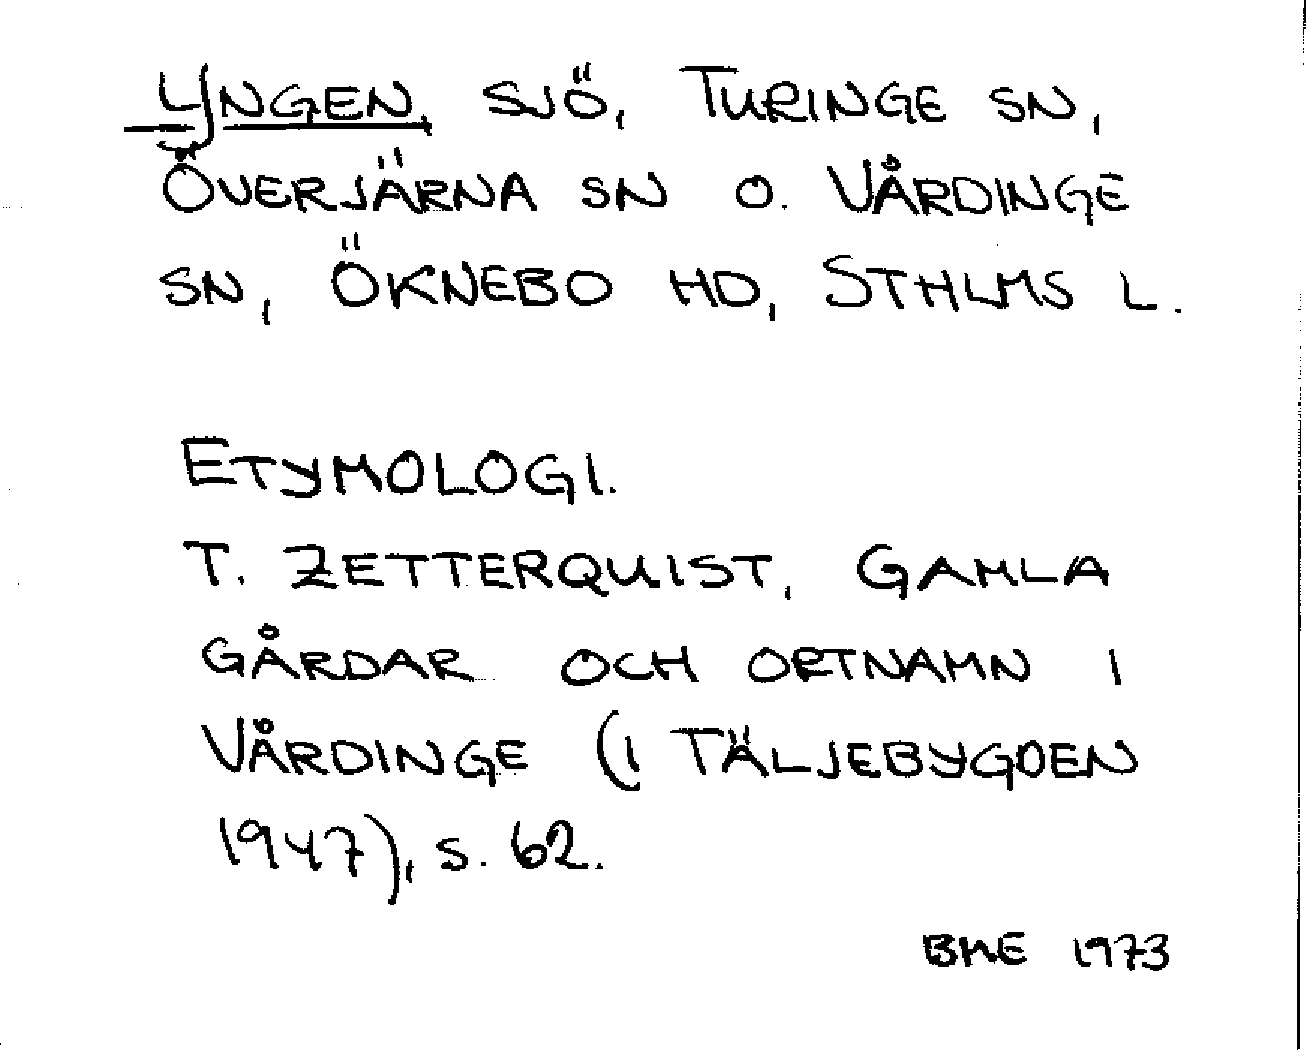 YNGEN, SJÖ, TURINGE SN,
ÖVERJÄRNA SN O. VÅRDINGE
SN, ÖKNEBO HD, STHLMS L.
ETYMOLOGI.
T. ZETTERQUIST, GAMLA
GÅRDAR OCH ORTNAMN I
VÅRDINGE (I TÄLJEBYGDEN
1947), S. 62.
BME 1973